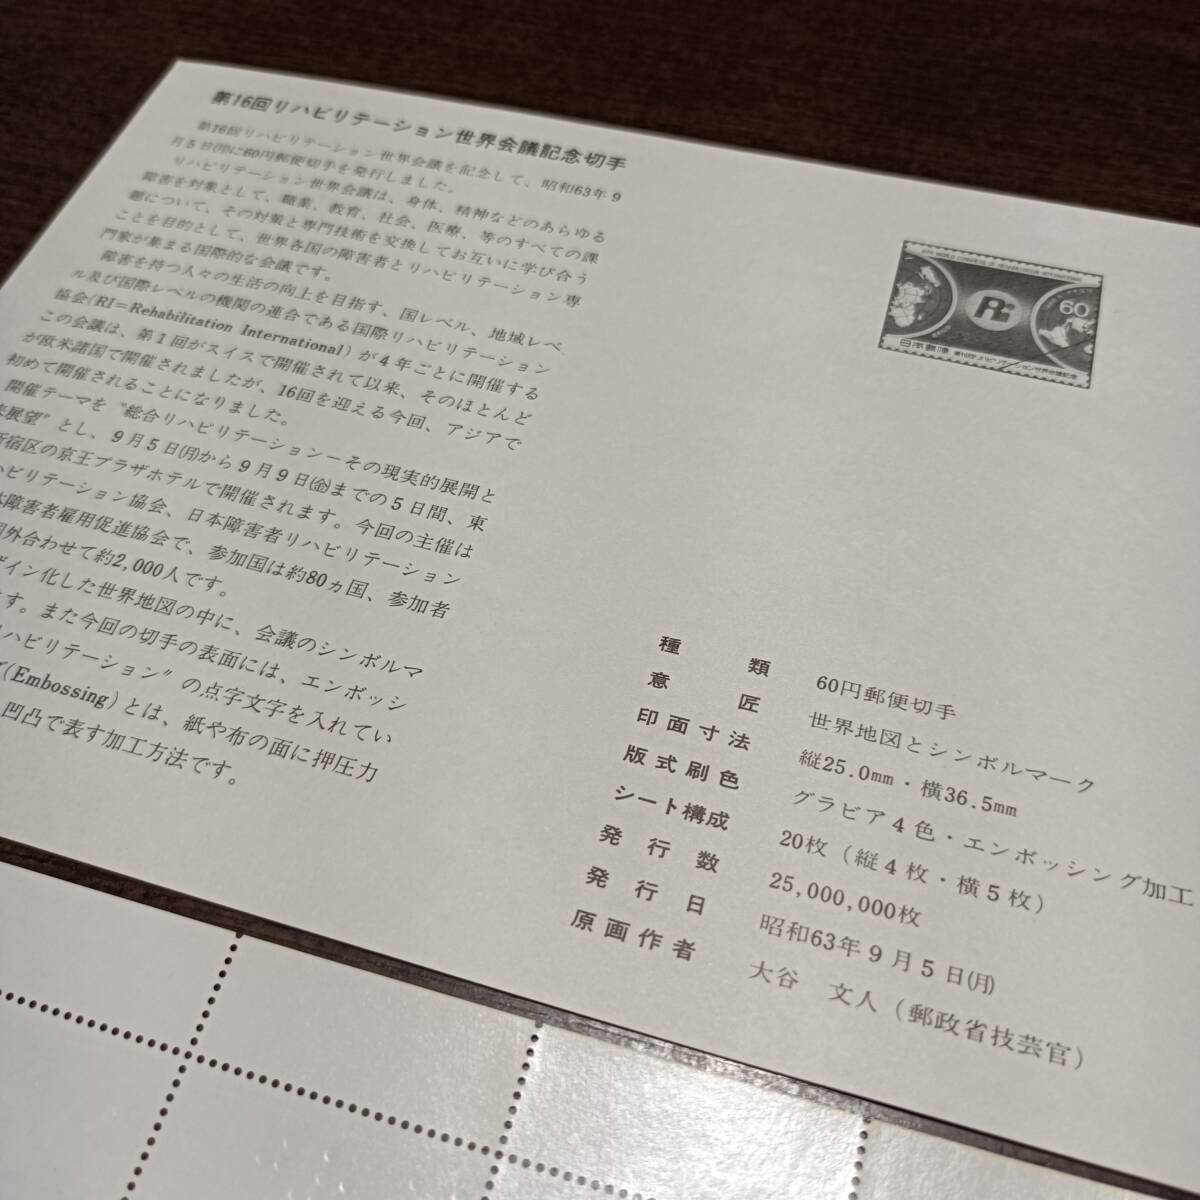 第16回リハビリテーション世界会議記念切手
第16回リハビリテーション世界会議を記念して、昭和63年9
月5日(月)に60円郵便切手を発行しました。
リハビリテーション世界会議は、身体、精神などのあらゆる
障害を対象として、職業、教育、社会、医療、等のすべての課
題について、その対策と専門技術を交換してお互いに学び合う
ことを目的として、世界各国の障害者とリハビリテーション専
門家が集まる国際的な会議です。
障害を持つ人々の生活の向上を目指す、国レベル、地域レベ
ル及び国際レベルの機関の連合である国際リハビリテーション
協会(RI=Rehabilitation International)が4年ごとに開催する
この会議は、第1回がスイスで開催されて以来、そのほとんど
が欧米諸国で開催されましたが、16回を迎える今回、アジアで
初めて開催されることになりました。
開催テーマを〝総合リハビリテーション－その現実的展開と
来展望〟とし、9月5日(月)から9月9日(金)までの5日間、東
新宿区の京王プラザホテルで開催されます。今回の主催は
ハビリテーション協会、日本障害者リハビリテーション
障害者雇用促進協会で、参加国は約80ヵ国、参加者
外合わせて約2,000人です。
イン化した世界地図の中に、会議のシンボルマ
す。また今回の切手の表面には、エンボッシ
ハビリテーション〟の点字文字を入れてい
(Embossing)とは、紙や布の面に押圧力
凹凸で表す加工方法です。
60
日本郵便 第16回リハビリテーション世界会議記念
種類 60円郵便切手
意匠 世界地図とシンボルマーク
印面寸法 縦25.0mm・横36.5mm
版式刷色 グラビア4色・エンボッシング加工
シート構成 20枚(縦4枚・横5枚)
発行数 25,000,000枚
発行日 昭和63年9月5日(月)
原画作者 大谷 文人(郵政省技芸官)